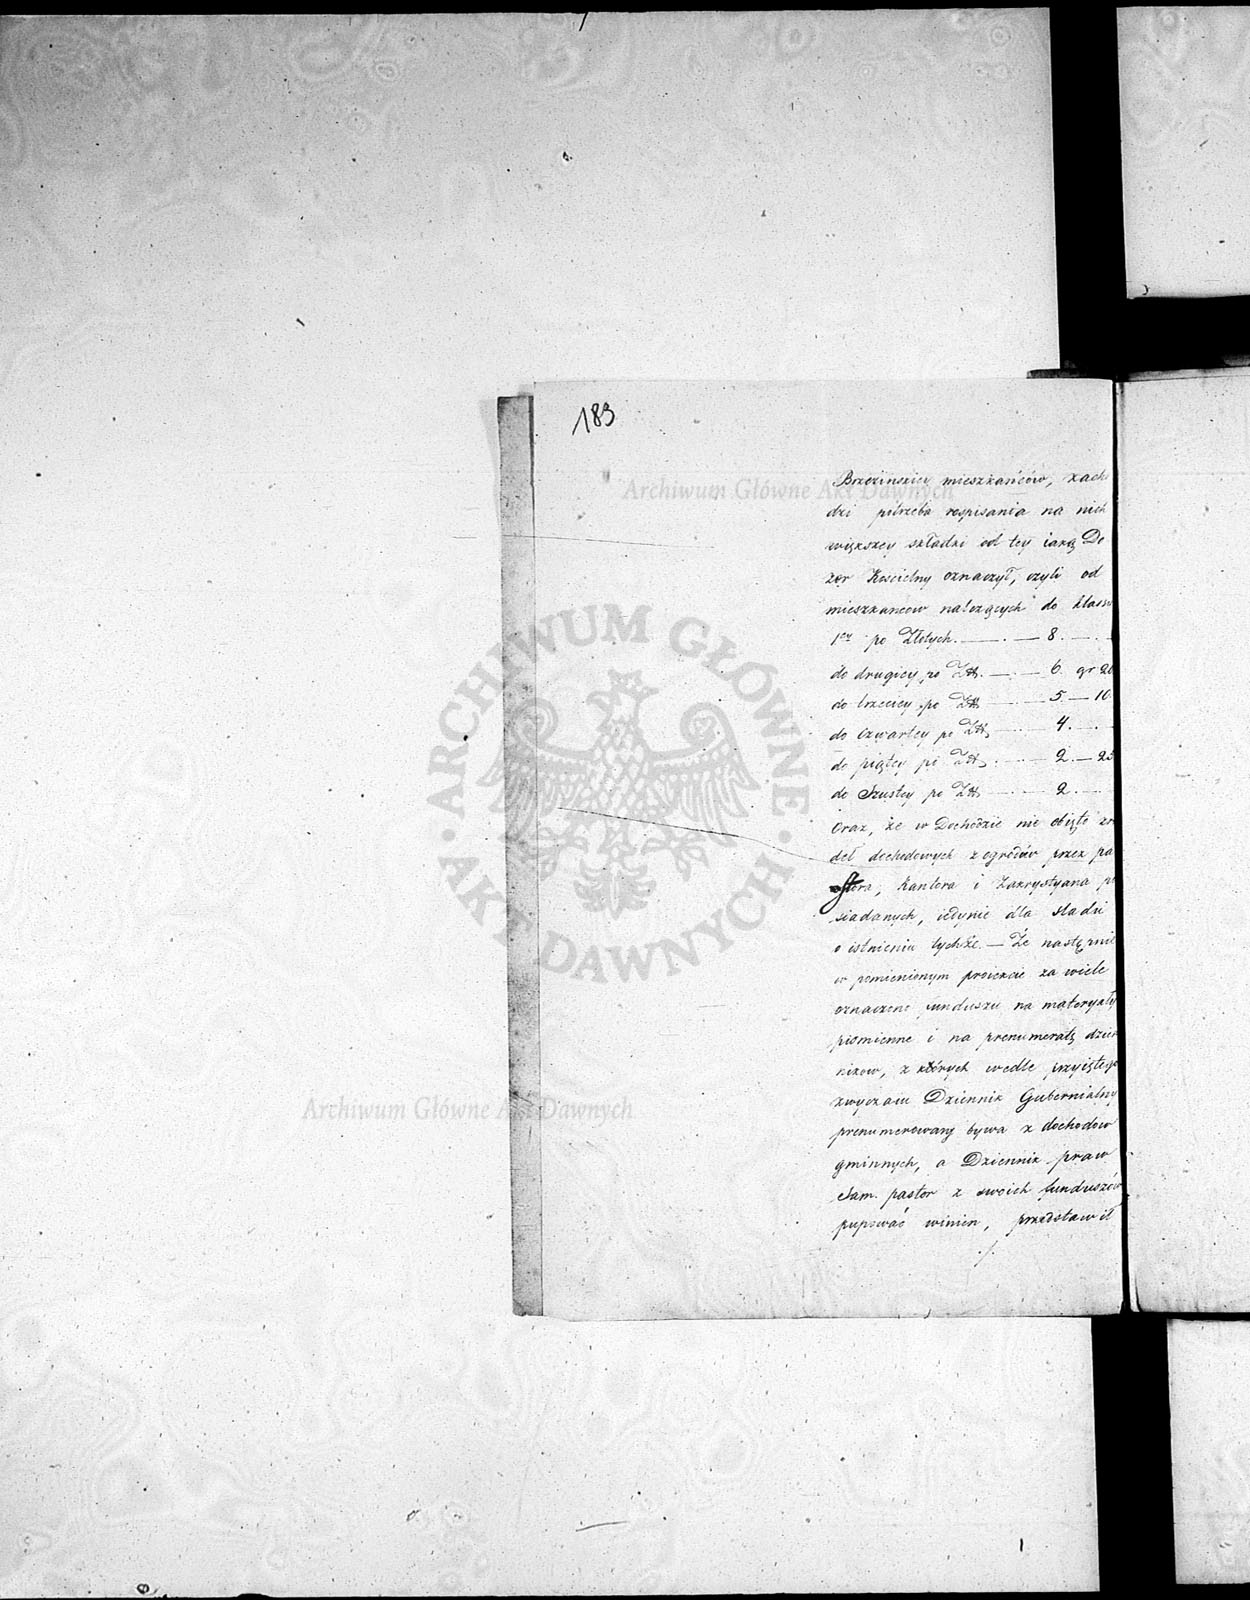 183
Brzezinskiey mieszkańców, zacho
dzi potrzeba rozpisania na nich
większey składki od tey iaką Do
zor Kościelny oznaczył, czyli od
mieszkancow należących do klassy
1ey po Złotych. — . — 8. — . —
do drugiey po Zł. — . — 6. gr 20
do trzeciey po Zł — . — 5. — 10
do czwartey po Zł — . — 4. — . —
do piątey po Zł. — . — 2. — 25
do Szustey po Zł — . — 2. — . —
oraz, że w Dochodzie nie obięto zró
deł dochodowych z ogrodów przez pa
stora, Kantora i Zakrystyana po
siadanych, iedynie dla sladu
o istnieniu tychże. — Że następnie
w pomienionym proiekcie za wiele
oznaczono funduszu na materyały
pismienne i na prenumeratę dzien
nikow, z których wedle przyiętego
zwyczaiu Dziennik Gubernialny
prenumerowany bywa z dochodow
gminnych, a Dziennik praw
Sam. pastor z swoich funduszów
kupować winien, przedstawił
./.
Archiwum Główne Akt Dawnych
Archiwum Główne Akt Dawnych
· ARCHIWUM GŁÓWNE · AKT DAWNYCH